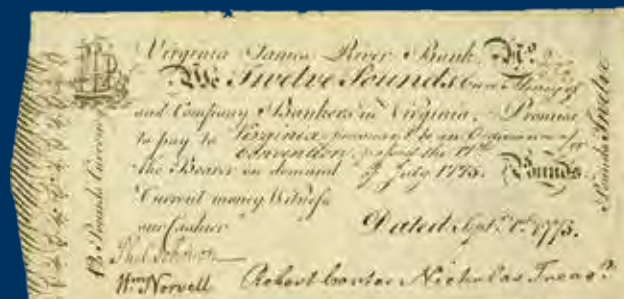 Virginia James River Bank. No.
We Twelve Pounds
and Company Bankers in Virginia, Promise
to pay to Virginia an Ordinance of
Convention passed the 17th or
the Bearer on demand of July 1775. Pounds
Current money Witness
our Cashier Dated Septr. 1st 1775.
Phil Johnson
Wm Norvell Robert Carter Nicholas Treasr.
12 Pounds Currency
Pounds Twelve